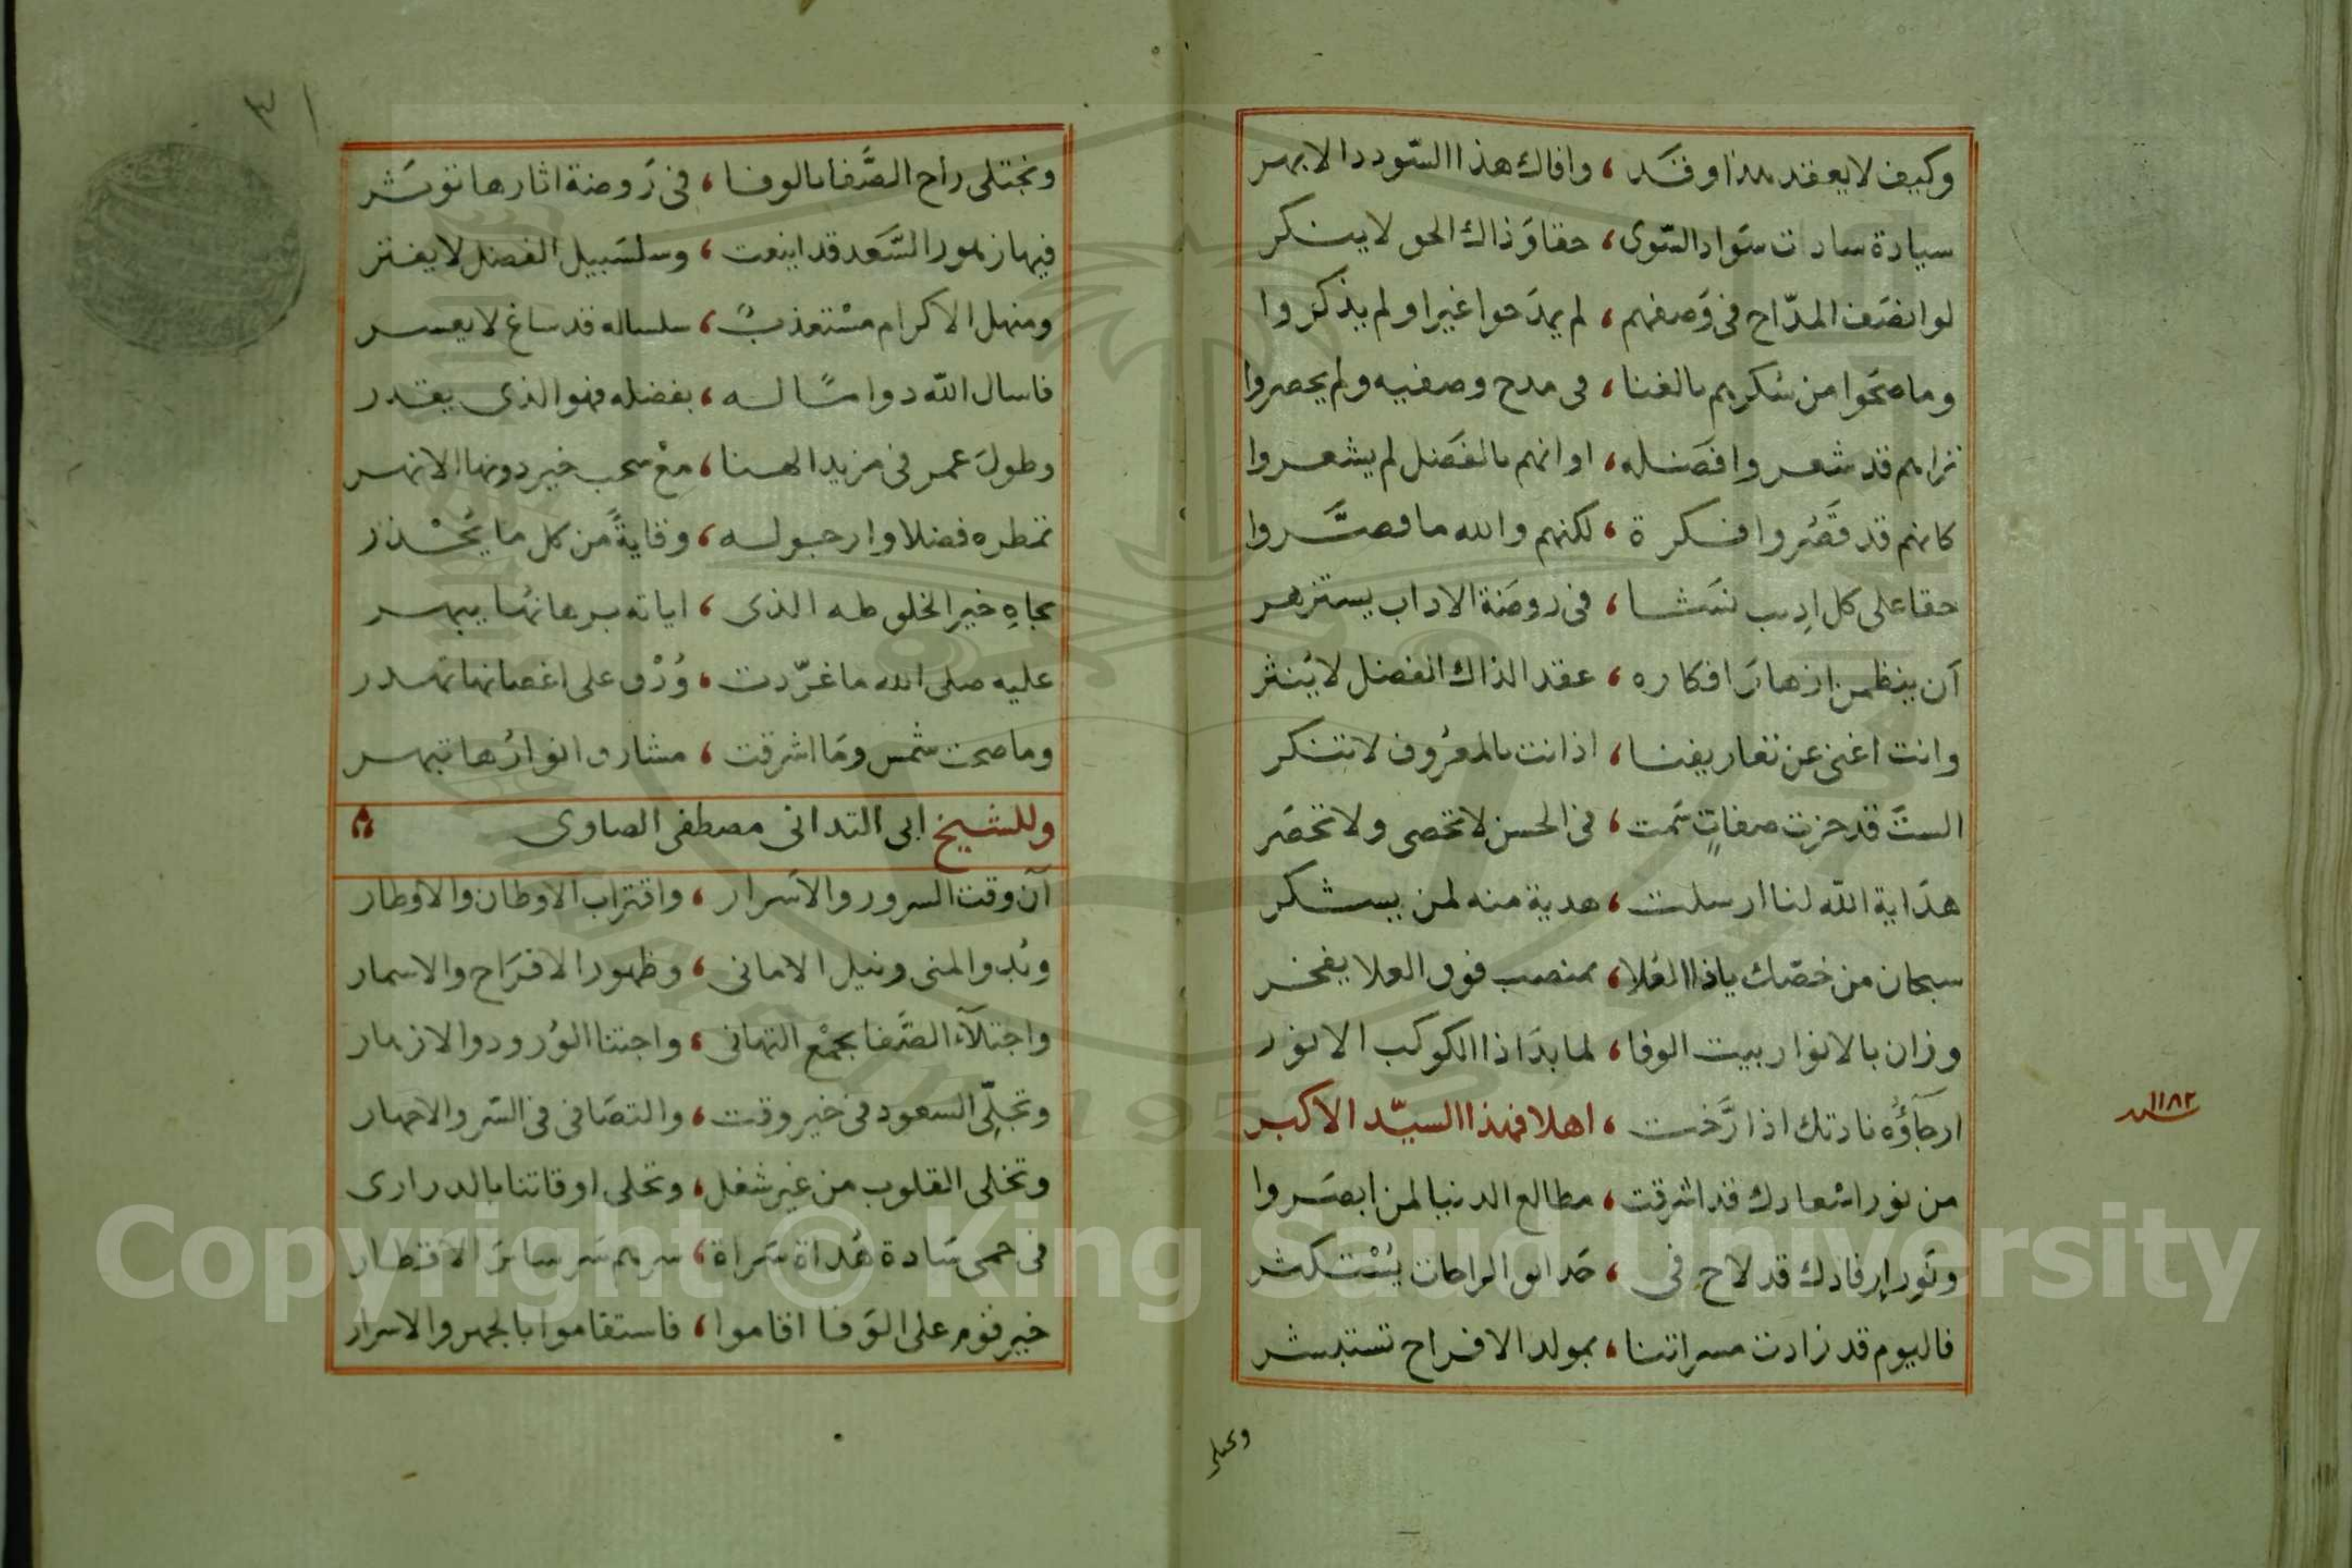 وكيف لا يعقد هذا وقد ، وافاك هذا السودد الابهر
سيادة سادات سواد السوى ، حقا وذاك الحق لا ينكر
لو انصف المداح في وصفهم ، لم يمدحوا غيرا ولم يذكروا
وما صحوا من سكرهم بالغنا ، في مدح وصفيه ولم يحصروا
تراهم قد شعروا فضله ، او انهم بالفضل لم يشعروا
كانهم قد قصروا فكرة ، لكنهم والله ما قصروا
حقا على كل اديب نشا ، في روضة الاداب يستزهر
ان ينظمن ازهار افكاره ، عقد الذاك الفضل لا ينثر
وانت اغنى عن تعاريفنا ، اذ انت بالمعروف لا تنكر
الست قد حزت صفات سمت ، في الحسن لا تحصى ولا تحصر
هداية الله لنا ارسلت ، هدية منه لمن يشكر
سبحان من خصك ياذا العلا ، بمنصب فوق العلا يفخر
وزان بالانوار بيت الوفا ، لما بدا ذا الكوكب الانور
ارجاؤه نادتك اذ ارخت ، اهلا فهذا السيد الاكبر
سنه ١١٨٢
من نور اسعادك قد اشرقت ، مطالع الدنيا لمن ابصروا
ونور ارفادك قد لاح في ، حدائق الراحات يستكثر
فاليوم قد زادت مسراتنا ، بمولد الافراح تستبشر
ونجتلى
٣١
ونجتلى راح الصفا بالوفا ، في روضة اثارها تؤثر
فيها زهور السعد قد اينعت ، وسلسبيل الفضل لا يفتر
ومنهل الاكرام مستعذب ، سلساله قد ساغ لا يعسر
فاسال الله دواما له ، بفضله فهو الذى يقدر
وطول عمر في مزيد الهنا ، مع سحب خير دونها الانهر
تمطره فضلا وارجو له ، وقاية من كل ما يحذر
بجاه خير الخلق طه الذى ، اياته برهانها يبهر
عليه صلى الله ما غردت ، ورق على اغصانها تهدر
وما صحت شمس وما اشرقت ، مشارق انوارها تبهر
وللشيخ ابى التدانى مصطفى الصاوى
آن وقت السرور والاسرار ، واقتراب الاوطان والاوطار
وبدو المنى ونيل الامانى ، وظهور الافراح والاسمار
واجتلاء الصفا بجمع التهانى ، واجتنا الورود والازهار
وتجلى السعود في خير وقت ، والتصافي في السر والاجهار
وتخلى القلوب من غير شغل ، وتحلى اوقاتنا بالدرارى
في حمى سادة هداة سراة ، سرهم سر سائر الاقطار
خير قوم على الوفا اقاموا ، فاستقاموا بالجهر والاسرار